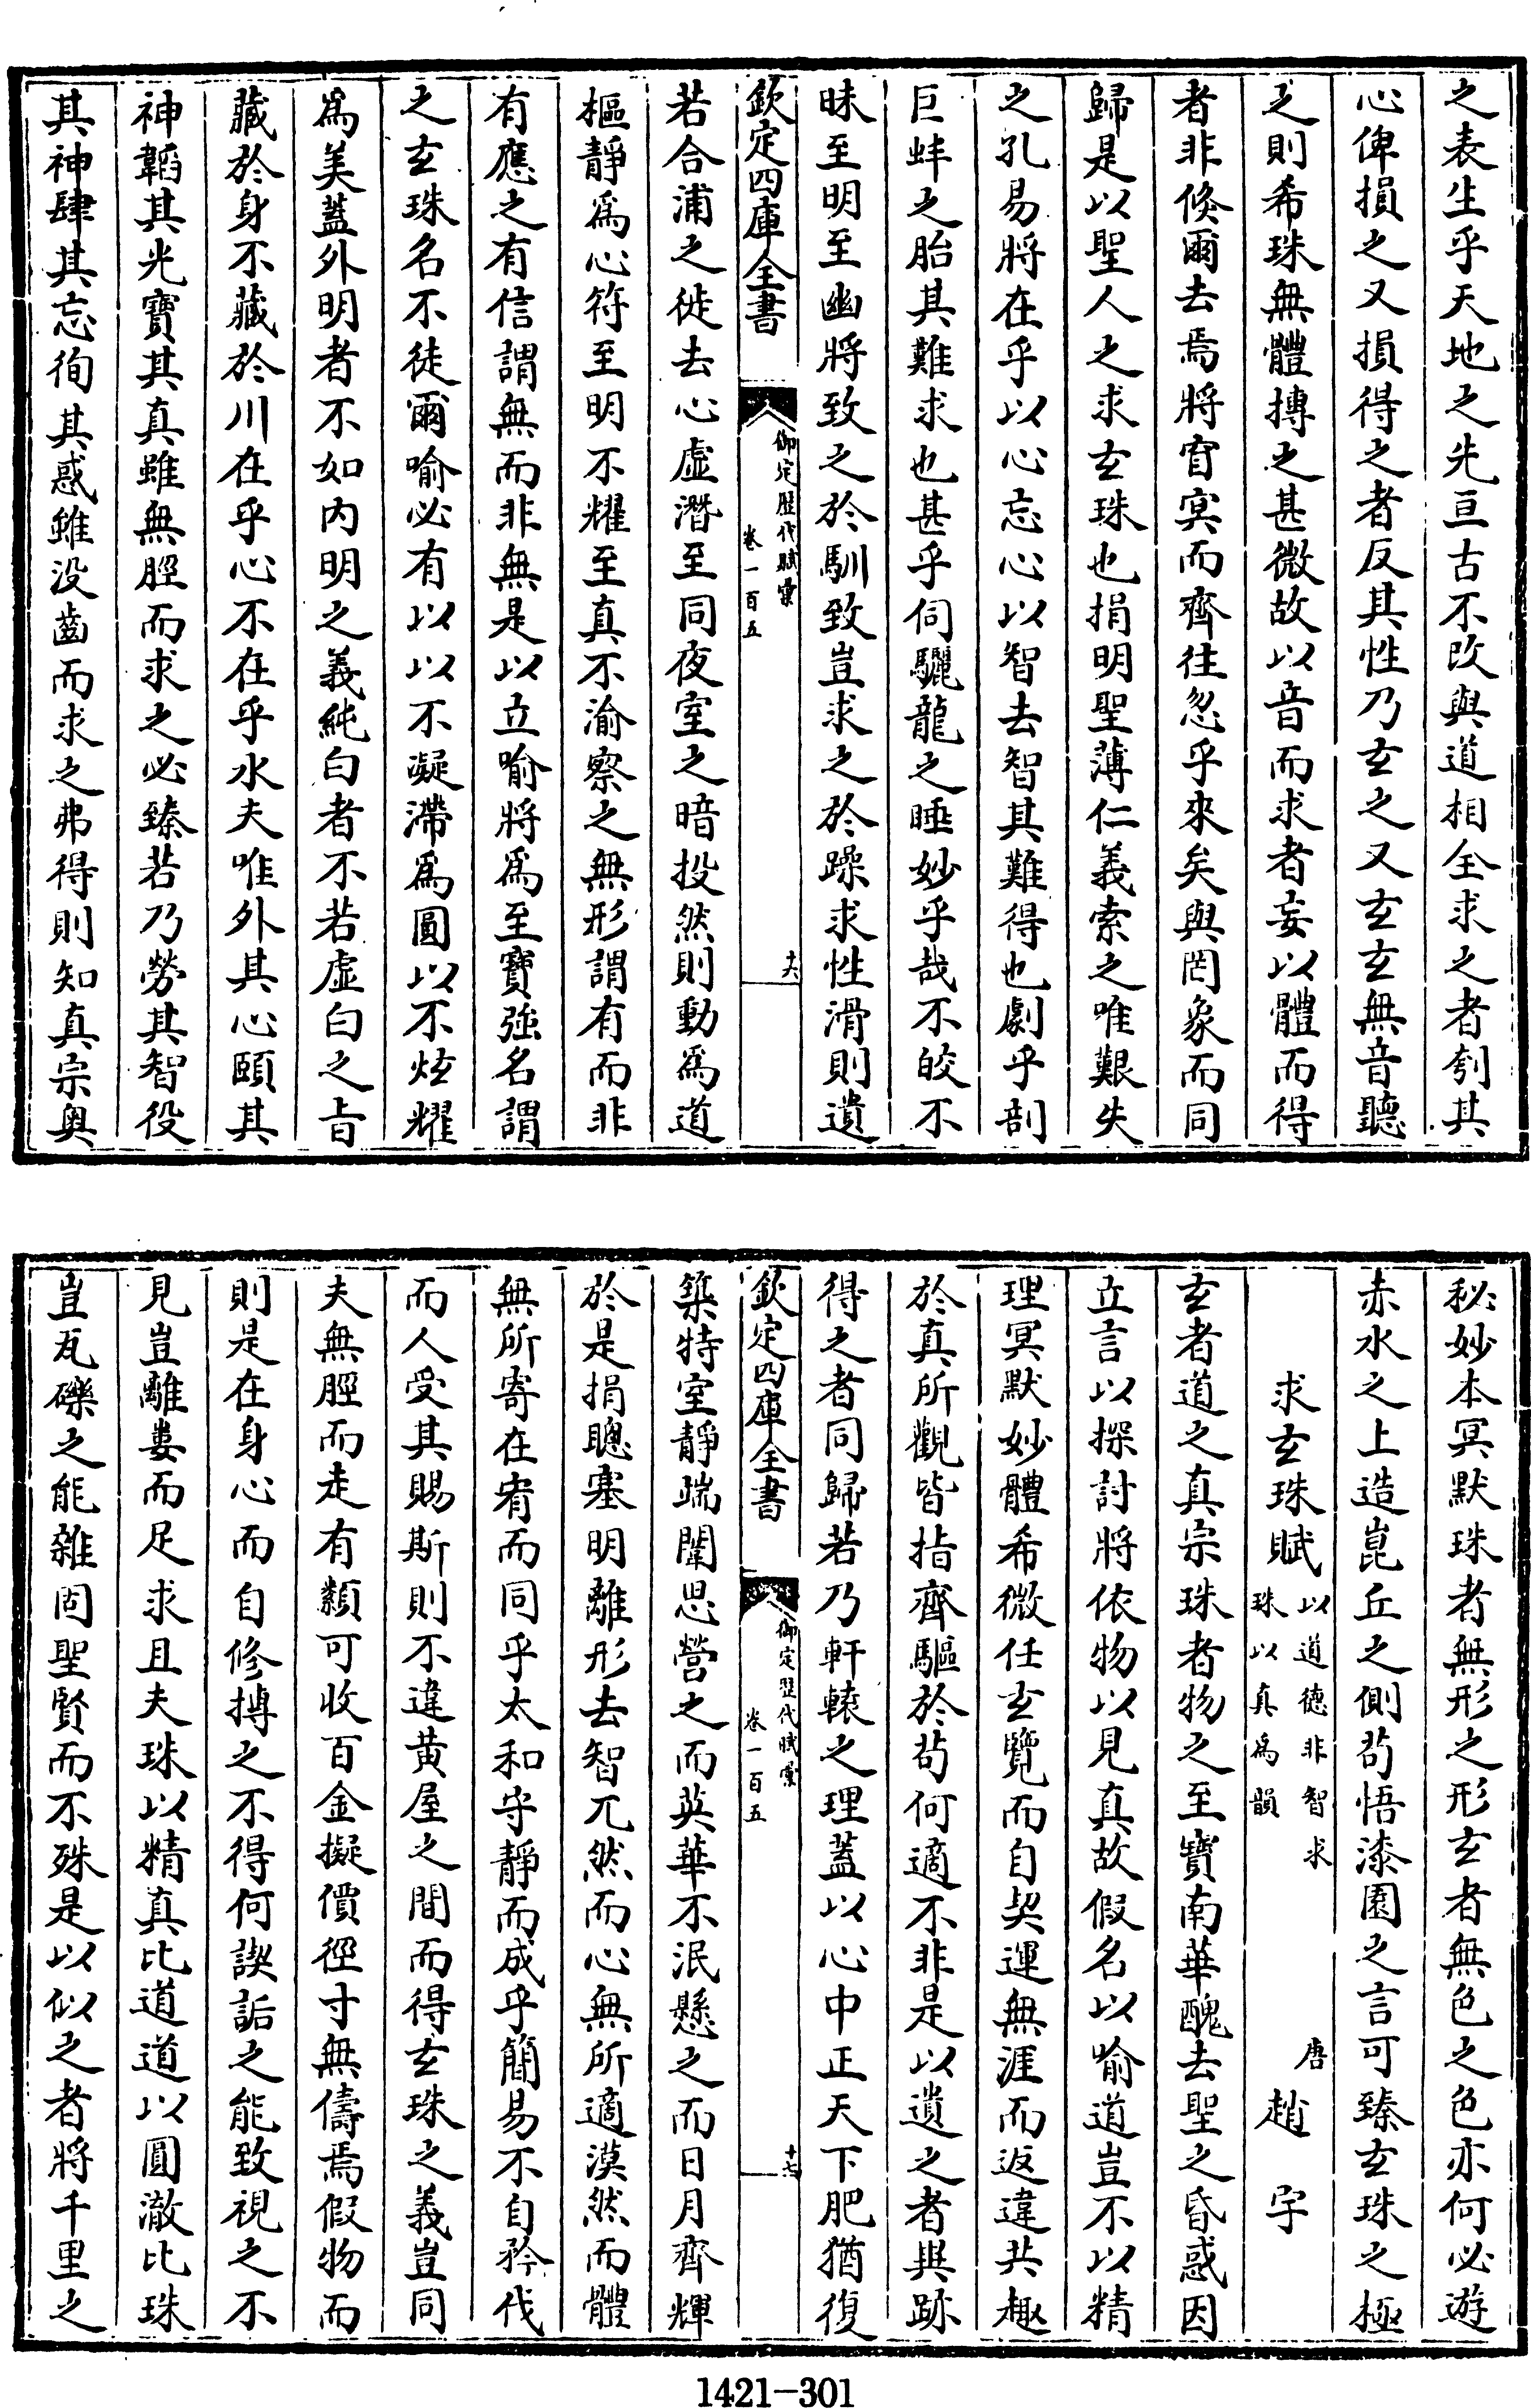 之表生乎天地之先亘古不改與道相全求之者刳其
心俾損之又損得之者反其性乃玄之又玄玄無音聽
之則希珠無體搏之甚微故以音而求者妄以體而得
者非倏爾去焉將窅冥而齊往忽乎來矣與罔象而同
歸是以聖人之求玄珠也捐明聖薄仁義索之唯艱失
之孔易將在乎以心忘心以智去智其難得也劇乎剖
巨蚌之胎其難求也甚乎伺驪龍之睡妙乎哉不皎不
昧至明至幽將致之於馴致豈求之於躁求性滑則遺
欽定四庫全書
御定歴代賦彙
卷一百五
十六
若合浦之徙去心虛潛至同夜室之暗投然則動為道
樞靜為心符至明不耀至真不渝察之無形謂有而非
有應之有信謂無而非無是以立喻將為至寶強名謂
之玄珠名不徒爾喻必有以以不凝滯為圓以不炫耀
為美蓋外明者不如内明之義純白者不若虛白之旨
藏於身不藏於川在乎心不在乎水夫唯外其心頤其
神韜其光寶其真雖無脛而求之必臻若乃勞其智役
其神肆其忘徇其惑雖没齒而求之弗得則知真宗奥
秘妙本冥默珠者無形之形玄者無色之色亦何必遊
赤水之上造崑丘之側茍悟漆園之言可臻玄珠之極
求玄珠賦
以道德非智求
珠以真為韻
唐
趙宇
玄者道之真宗珠者物之至寶南華醜去聖之昏惑因
立言以探討將依物以見真故假名以喻道豈不以精
理冥默妙體希微任玄覽而自契運無涯而返違共趣
於真所觀皆指齊驅於茍何適不非是以遺之者與跡
得之者同歸若乃軒轅之理蓋以心中正天下肥猶復
欽定四庫全書
御定歴代賦彙
卷一百五
十七
築特室靜端闈思營之而英華不泯懸之而日月齊輝
於是捐聰塞明離形去智兀然而心無所適漠然而體
無所寄在宥而同乎太和守靜而成乎簡易不自矜伐
而人受其賜斯則不違黄屋之間而得玄珠之義豈同
夫無脛而走有纇可收百金擬價徑寸無儔焉假物而
則是在身心而自修搏之不得何諛詬之能致視之不
見豈離婁而足求且夫珠以精真比道道以圓澈比珠
豈瓦礫之能雜固聖賢而不殊是以似之者將千里之
1421-301